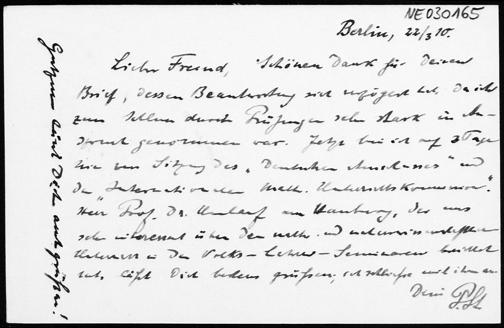 NE030165
Berlin, 22/3 10.
Lieber Freund, Schönen Dank für Deinen
Brief, dessen Beantwortung sich verzögert hat, da ich
zum selben durch Prüfungen sehr stark in An-
spruch genommen war. Jetzt bin ich auf 3 Tage
hier zur Sitzung des "Deutschen Ausschusses" und
der Internationalen Math. Unterrichtskommission.
Herr Prof. Dr. Umlauf aus Hamburg, der uns
sehr interessant über den math. und naturwissenschaftlichen
Unterricht in den Volks- und Lehrer-Seminaren berichtet
hat, läßt Dich bestens grüßen, ich schließe mich ihm an.
Dein P. St.
läßt Dich auch grüßen!